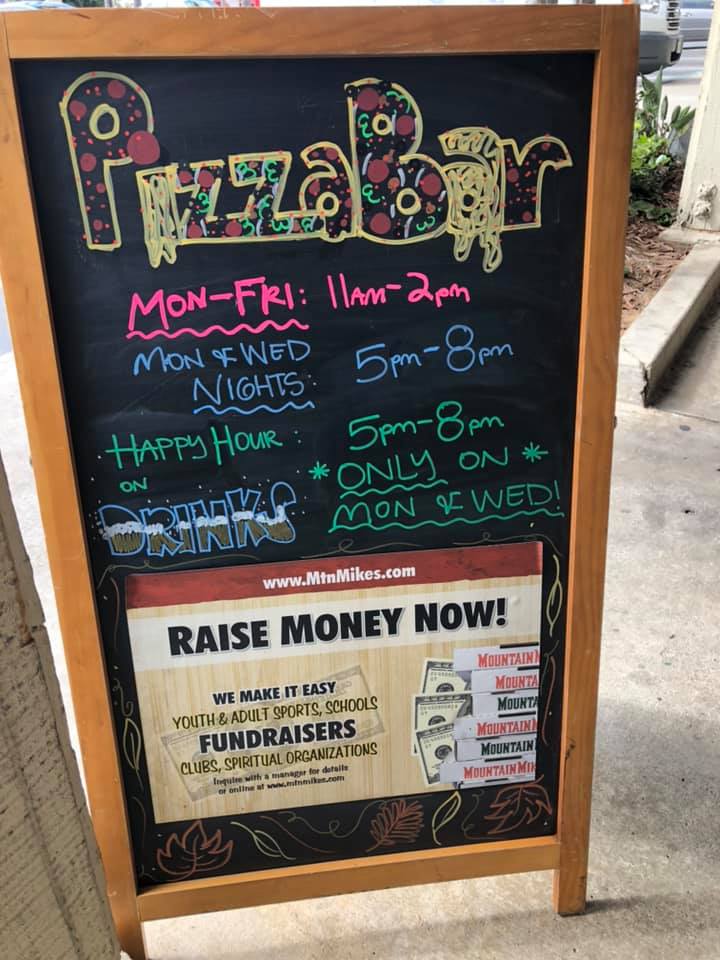 PizzaBar
MON-FRI: 11AM-2pm
MON & WED
NIGHTS: 5pm-8pm
HAPPY HOUR: 5pm-8pm
ON
DRINKS
*ONLY ON*
MON & WED!
www.MtnMikes.com
RAISE MONEY NOW!
WE MAKE IT EASY
YOUTH & ADULT SPORTS, SCHOOLS
FUNDRAISERS
CLUBS, SPIRITUAL ORGANIZATIONS
Inquire with a manager for details
or online at www.mtnmikes.com
MOUNTAIN
MOUNTA
MOUNTA
MOUNTAIN
MOUNTAIN
MOUNTAIN MIK